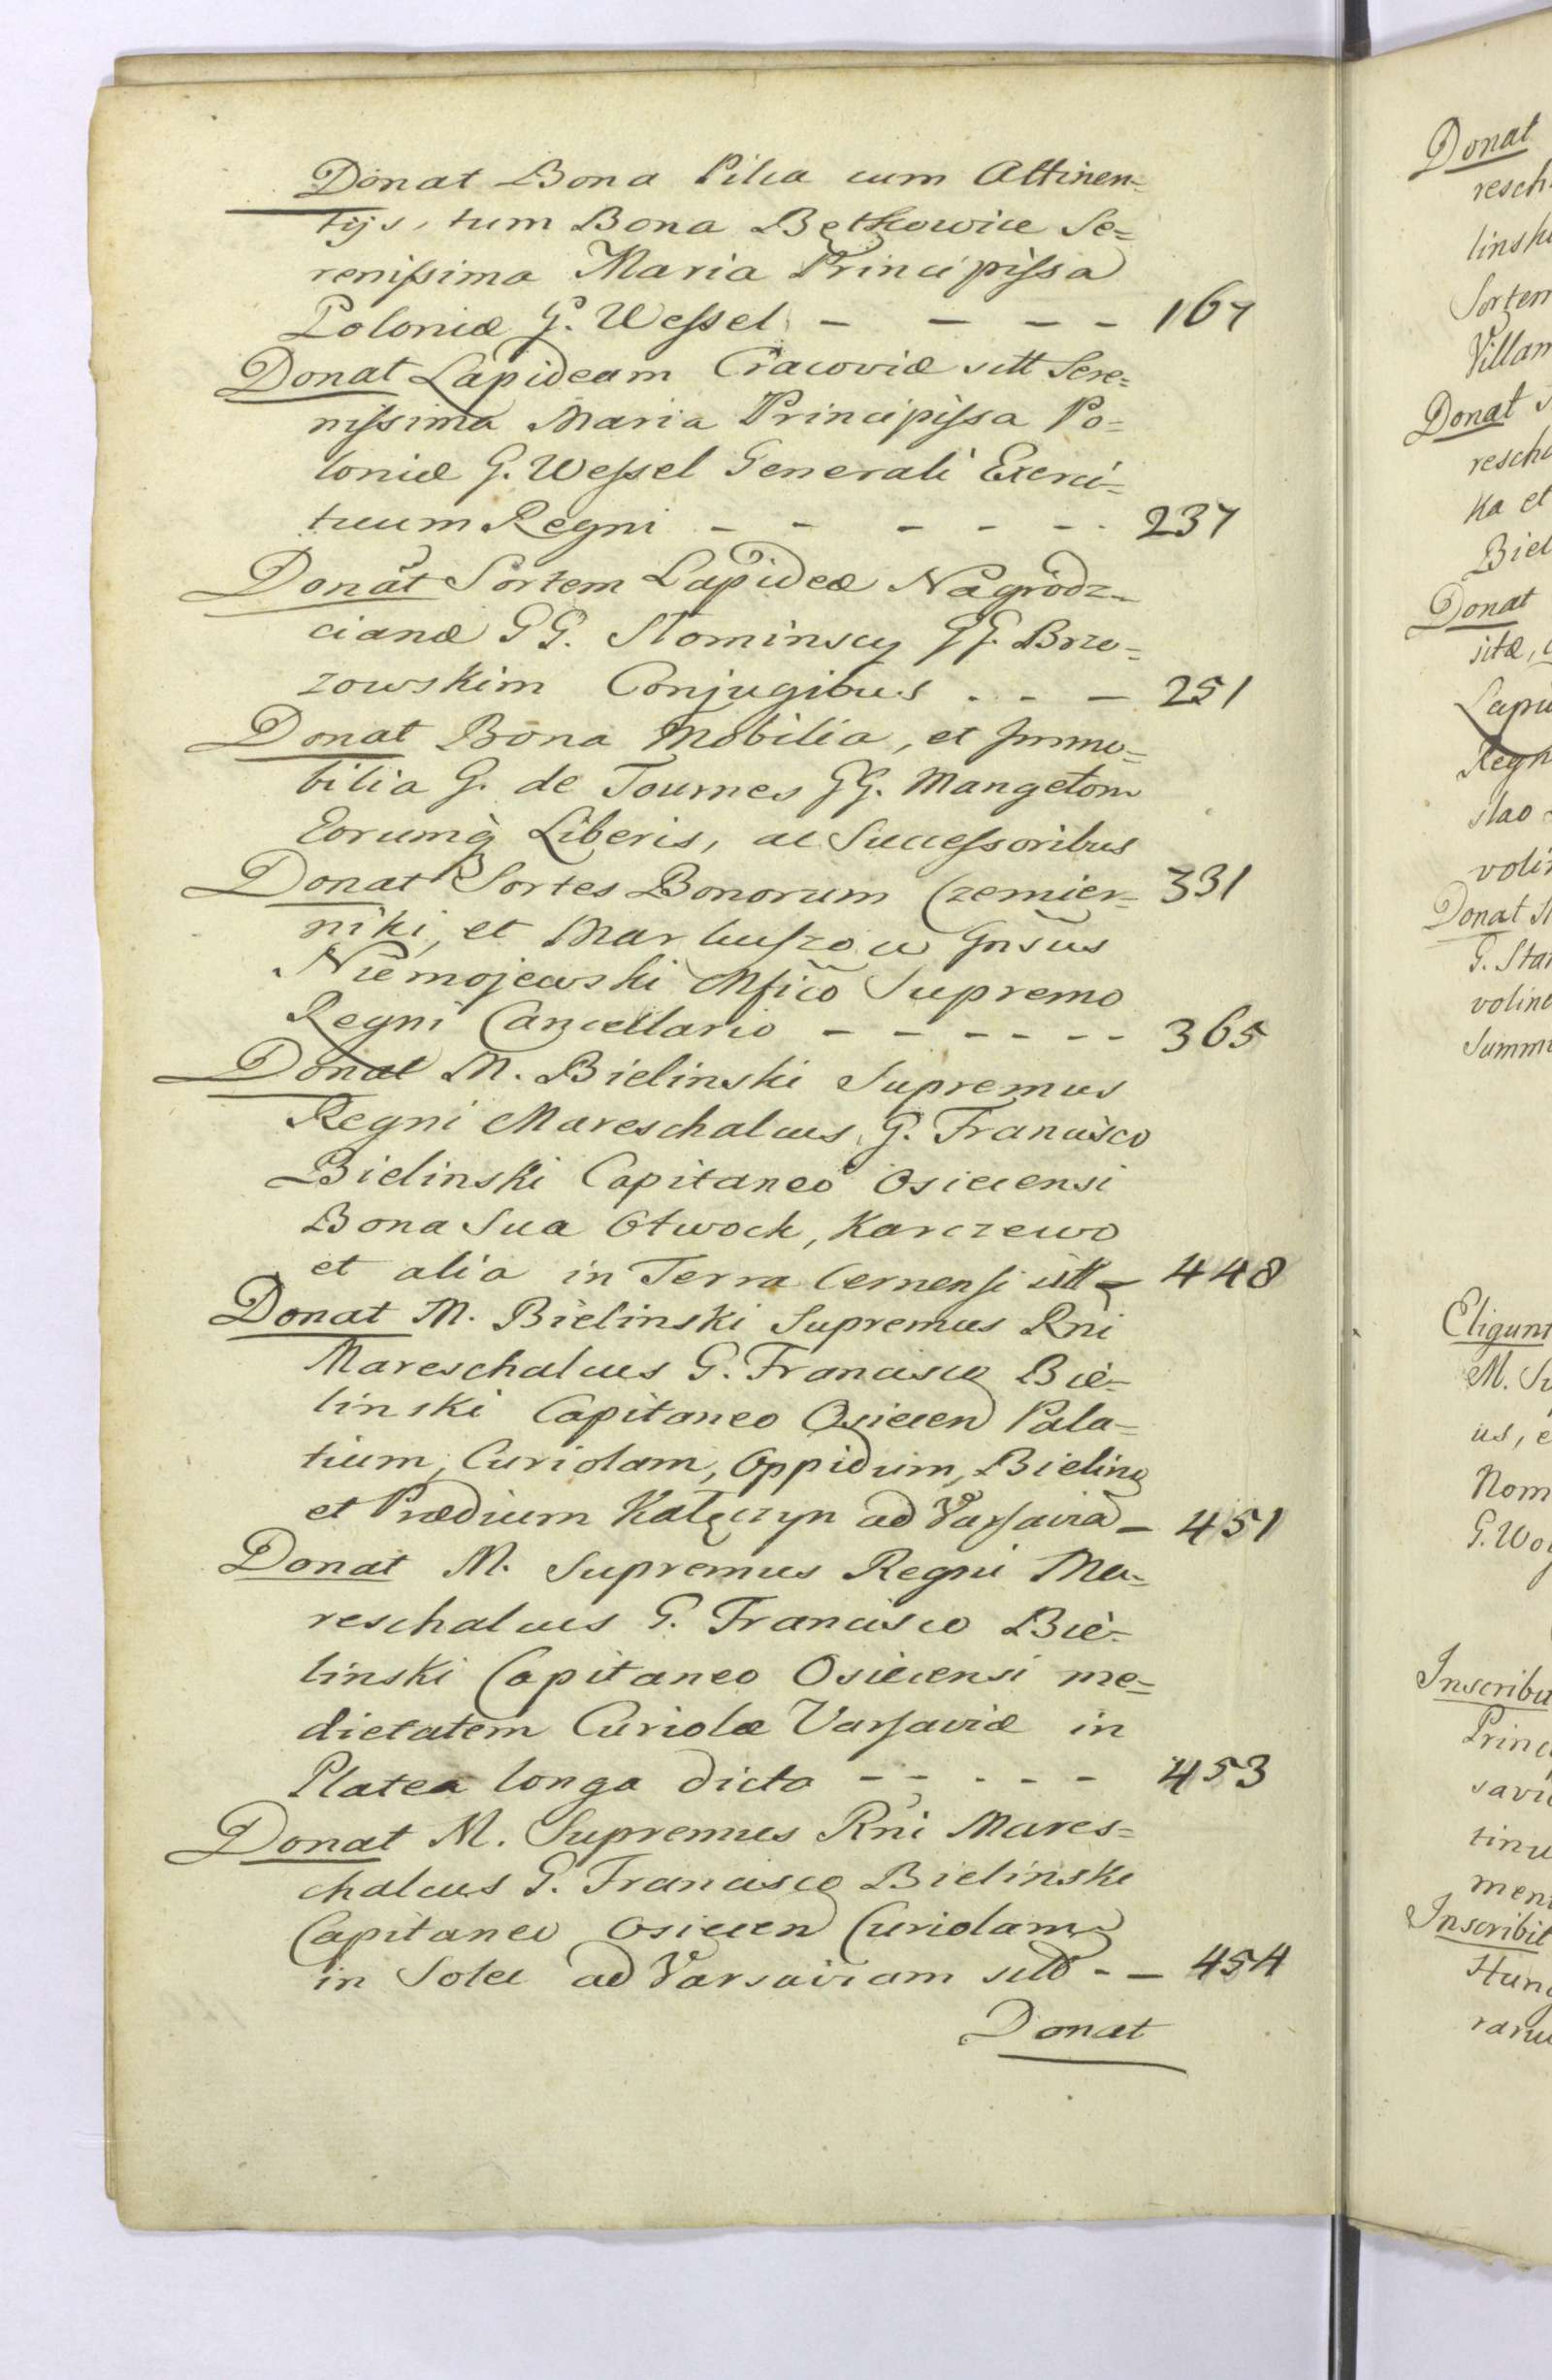 Donat Bona Pilca cum Attinen=
tijs, tum Bona Bętkowice Se=
renissima Maria Principissa
Poloniæ G. Wessel - - - - 167
Donat Lapideam Cracoviæ sitt Sere=
nissima Maria Principissa Po=
loniæ G. Wessel Generali Exerci=
tuum Regni - - - - - 237
Donat Sortem Lapideæ Nagrodz=
cianæ GG. Słominscy GG. Brzo=
zowskim Conjugibus - - - 251
Donat Bona Mobilia, et Immo=
bilia G. de Tournes GG. Mangetom
Eorumq́ Liberis, ac Successoribus
Donat Sortes Bonorum Czemier= 331
niki, et Gnsus
Niemojewski Mfico Supremo
Regni Cancellario - - - - - - 365
Donat M. Bielinski Supremus
Regni Mareschalcus, G. Francisco
Bielinski Capitaneo Osiecensi
Bona Sua Otwock, Karczewo
et alia in Terra Cernensi sitt - 448
Donat M. Bielinski Supremus Rni
Mareschalcus G. Francisco Bie=
linski Capitaneo Osiecen Pala=
tium, Curiolam, Oppidum, Bielino
et Prædium Kałęczyn ad Varsavia - 451
Donat M. Supremus Regni Ma=
reschalcus G. Francisco Bie=
linski Capitaneo Osiecensi me=
dietatem Curiolæ Varsaviæ in
Platea longa dicta - - - - - 453
Donat M. Supremus Rni Mares=
chalcus G. Francisco Bielinski
Capitaneo Osiecen Curiolam
in Solec ad Varsaviam sitt - - 454
Donat
Donat
resch
linski
Sortem
Villam
Donat
resch
ka et
Biel
Donat
sitæ,
Lapi
Regn
slao
volin
Donat
G. Star
voline
Summ
Eligunt
M.
us, e
Nom
G. Woy
Inscribu
Princ
savi
tinu
men
Inscribit
Hung
raru